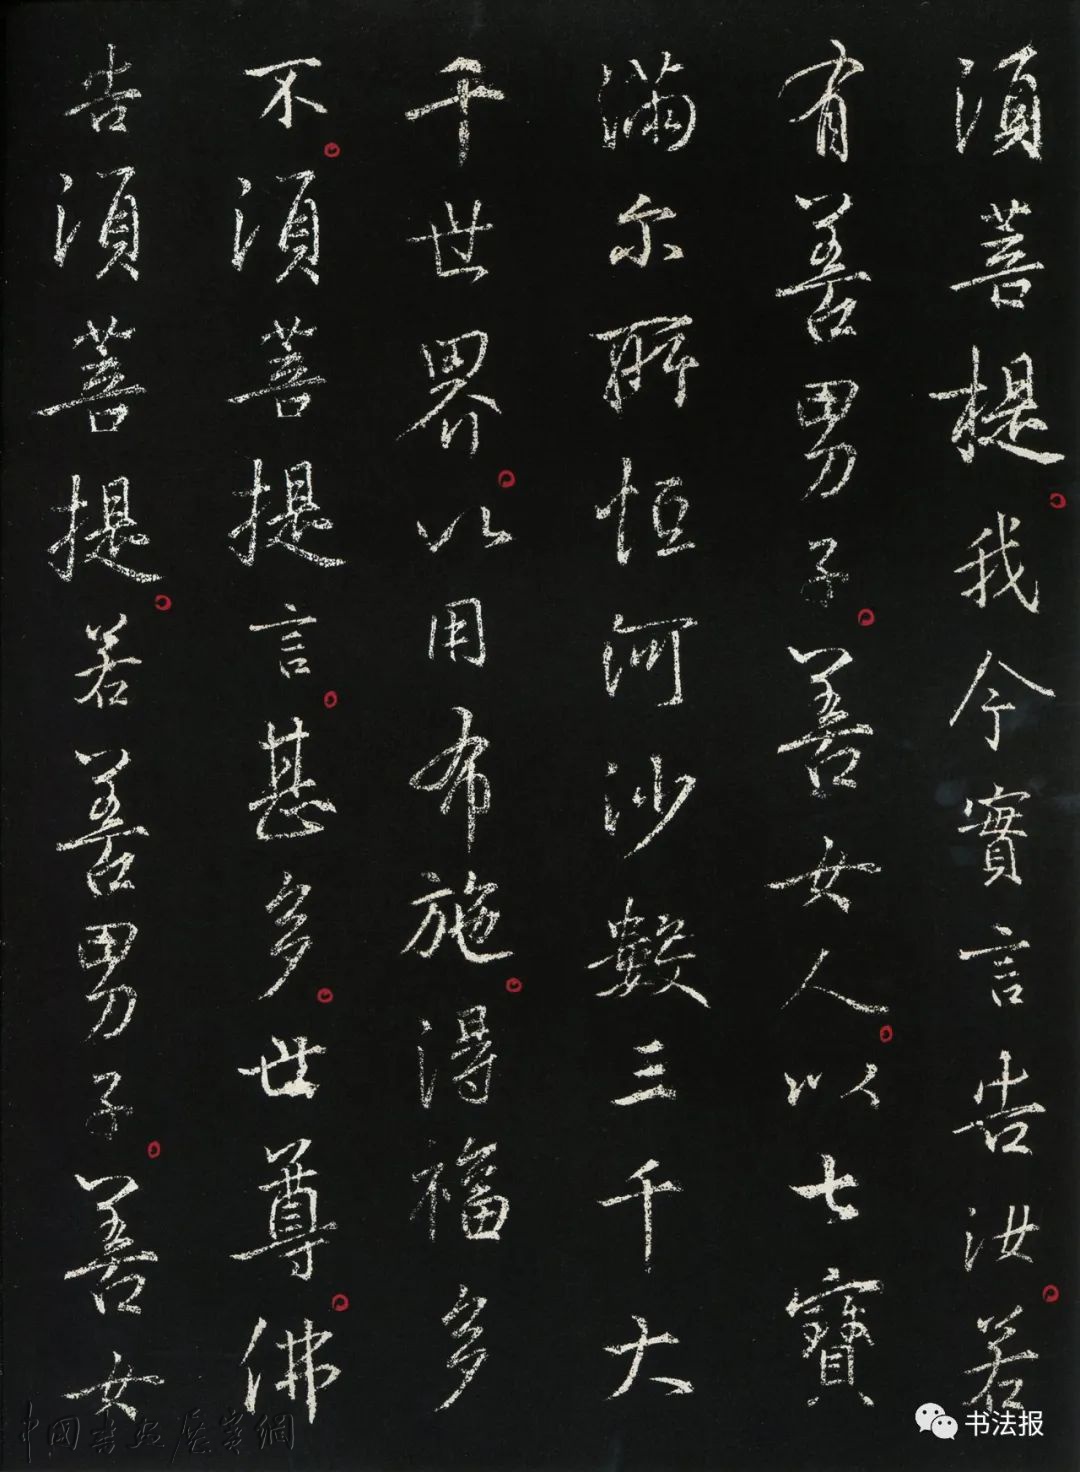 須菩提我今實言告汝若
有善男子善女人以七寶
滿尔所恒河沙數三千大
千世界以用布施得福多
不須菩提言甚多世尊佛
告須菩提若善男子善女
书法报
中国書法展空網